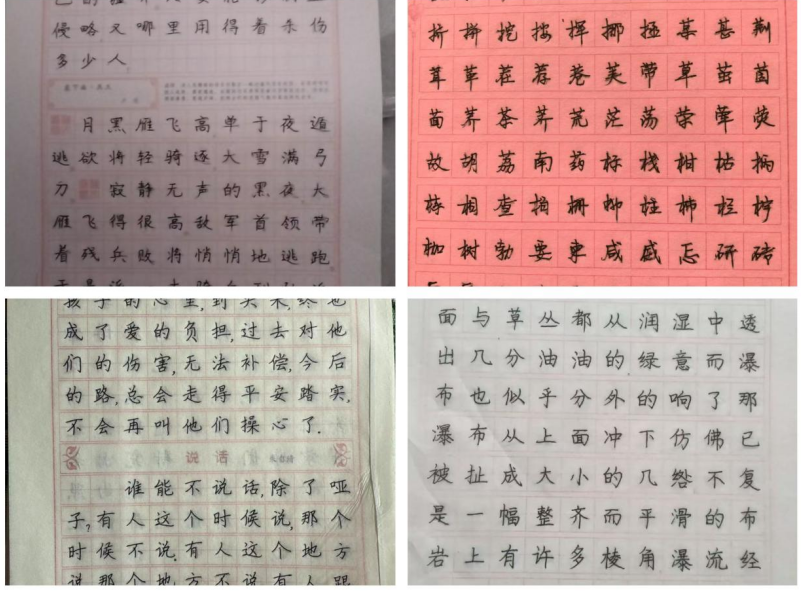 侵略又哪里用得着杀伤
多少人
塞下曲
月黑雁飞高,单于夜遁
逃。欲将轻骑逐,大雪满弓
刀。寂静无声的黑夜,大
雁飞得很高,敌军首领带
着残兵败将悄悄地逃跑。
挤拼挖按挥挪拯某甚荆
茸革茬荐巷荚带草茧茵
茴荞茶荠荒茫荡荣荤荧
故胡荔南药标栈柑枯柄
栋相查柏栅柳柱柿栏柠
枷树勃要柬咸威研砖
成了爱的负担,过去对他
们的伤害,无法补偿,今后
的路,总会走得平安踏实,
不会再叫他们操心了.
说话
谁能不说话,除了哑
子,有人这个时候说,那个
时候不说.有人这个地方
说那个地方不说有人跟
面与草丛都从润湿中透
出几分油油的绿意而瀑
布也似乎分外的响了那
瀑布从上面冲下仿佛已
被扯成大小的几绺不复
是一幅整齐而平滑的布
岩上有许多棱角瀑流经